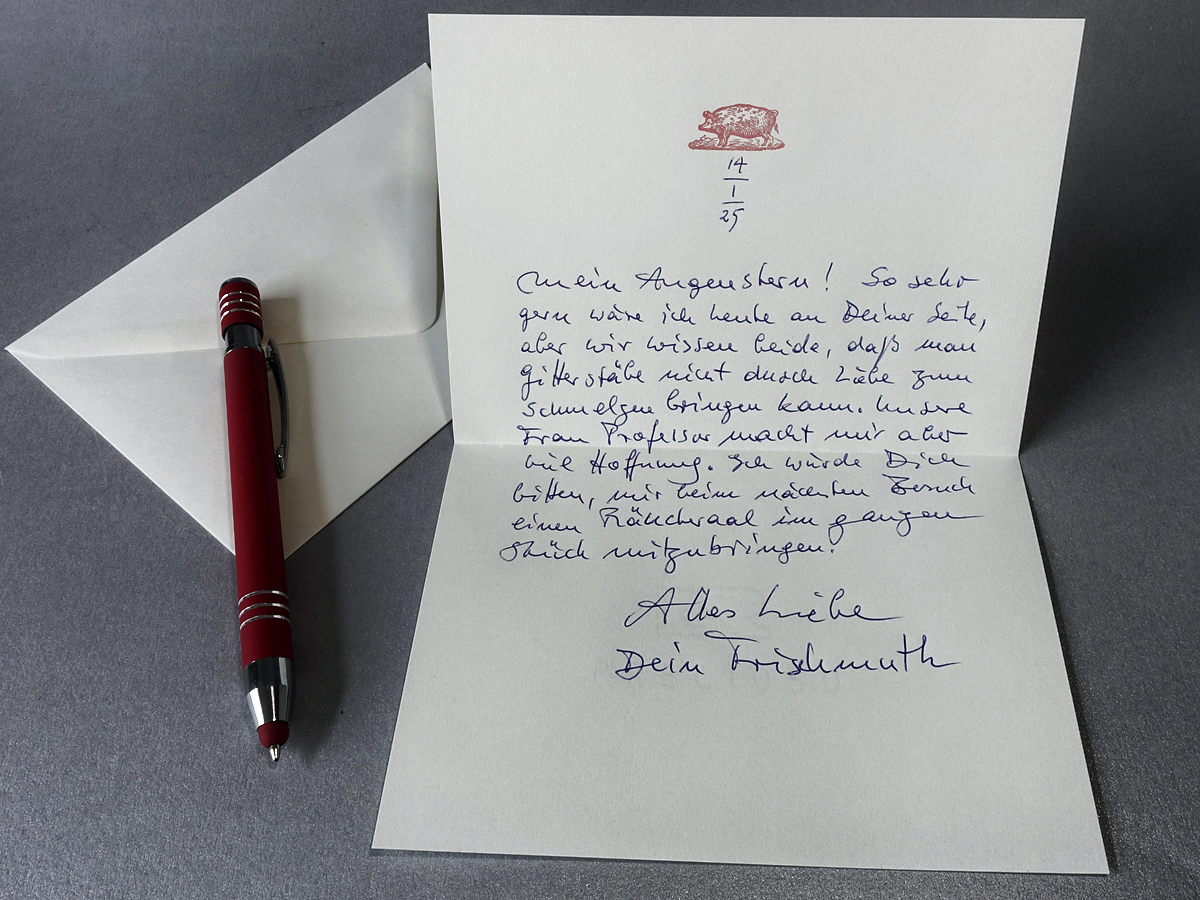 14
1
25
Mein Augenstern! So sehr
gern wäre ich heute an Deiner Seite,
aber wir wissen beide, daß man
Gitterstäbe nicht durch Liebe zum
schmelzen bringen kann. Unsere
Frau Professor macht mir aber
viel Hoffnung. Ich würde Dich
bitten, mir beim nächsten Besuch
einen Räucheraal im ganzen
Stück mitzubringen.
Alles Liebe
Dein Frischmuth